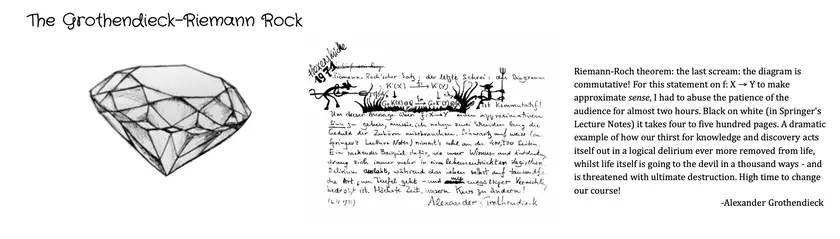 The Grothendieck-Riemann Rock
Hexenküche
1971
Riemann-Roch'scher Satz: der letzte Schrei: das Diagramm
ist kommutativ!
Um dieser Aussage über f: X → Y einen approximativen
Sinn zu geben, musste ich nahezu zwei Stunden lang die
Geduld der Zuhörer missbrauchen. Schwarz auf weiss (in
Springer's Lecture Notes) nimmt's wohl an die 400, 500 Seiten.
Ein packendes Beispiel dafür, wie unser Wissens- und Entdeckungs-
drang sich immer mehr in einem lebensentrückten logischen
Delirium auslebt, während das Leben selbst auf tausendfa-
che Art zum Teufel geht - und mit endgültiger Vernichtung
bedroht ist. Höchste Zeit, unsern Kurs zu ändern!
Alexander Grothendieck
Riemann-Roch theorem: the last scream: the diagram is
commutative! For this statement on f: X → Y to make
approximate sense, I had to abuse the patience of the
audience for almost two hours. Black on white (in Springer's
Lecture Notes) it takes four to five hundred pages. A dramatic
example of how our thirst for knowledge and discovery acts
itself out in a logical delirium ever more removed from life,
whilst life itself is going to the devil in a thousand ways - and
is threatened with ultimate destruction. High time to change
our course!
-Alexander Grothendieck